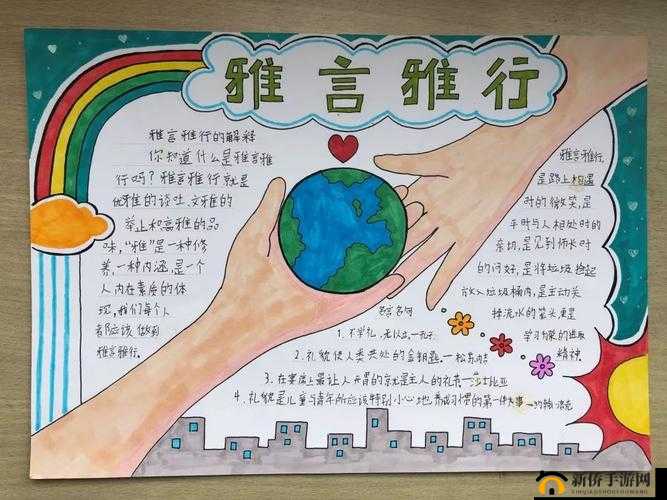 雅言雅行
雅言雅行的解释
你知道什么是雅言雅
行吗？雅言雅行就是
优雅的谈吐.文雅的
举止和高雅的品
味，“雅”是一种修
养,一种内涵,是个
人内在素质的体
现,我们每个人
都应该做到
雅言雅行.
雅言雅行
是路上相遇
时的微笑,是
平时与人相处时的
亲切,是见到师长时
的问好,是将垃圾捡起
放入垃圾桶内,是主动关
掉流水的笼头更是
学习中的进取
精神
名言名句
1.不学礼,无以立.一孔子
2.礼貌使人类共处的金钥匙.一松苏内
3.在宴席上最让人开胃的就是主人的礼节一莎士比亚
4.礼貌是儿童与青年所应该特别小心地养成习惯的第一件大事一约翰·洛克
新侨手游网
XINQIAOSHOUYOUWANG